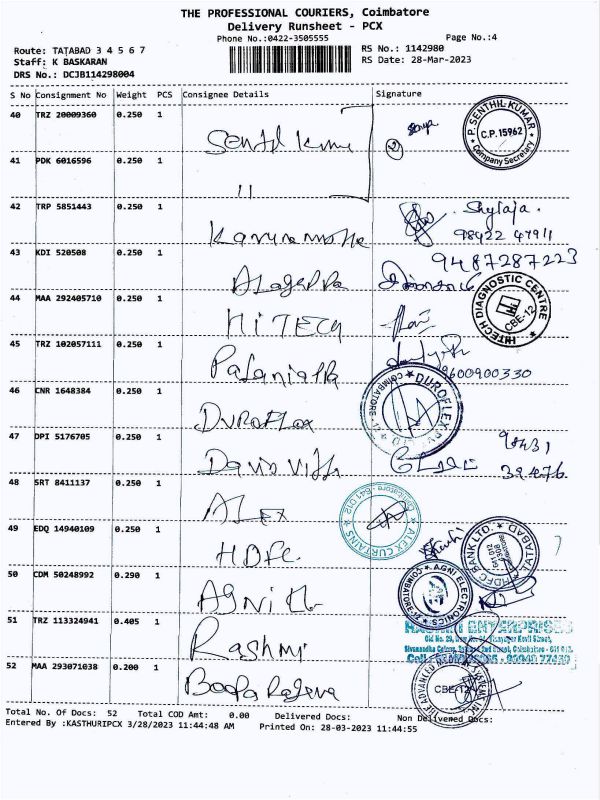 THE PROFESSIONAL COURIERS, Coimbatore
Delivery Runsheet - PCX
Phone No.:0422-3505555
Page No.:4
Route: TATABAD 3 4 5 6 7
RS No.: 1142980
Staff: K BASKARAN
RS Date: 28-Mar-2023
DRS No.: DCJB114298004
S No Consignment No Weight PCS Consignee Details Signature
40 TRZ 20009360 0.250 1 Senthil Kumar
P. SENTHIL KUMAR
C.P. 15962
Company Secretary
41 PDK 6016596 0.250 1 11
42 TRP 5851443 0.250 1 Shylaja.
98422 47911
43 KDI 520508 0.250 1 Alagappa
9487287223
44 MAA 292405710 0.250 1 HiTECH
HITECH DIAGNOSTIC CENTRE
CBE-12
45 TRZ 102057111 0.250 1 Palaniappa
9600900330
46 CNR 1648384 0.250 1 DUROFLEX
DUROFLEX PVT LTD
COIMBATORE-12
47 DPI 5176705 0.250 1
48 SRT 8411137 0.250 1 ALEX
ALEX CURTAINS
Coimbatore - 641 012
49 EDQ 14940109 0.250 1 HDFC
HDFC BANK LTD.
TATABAD
50 CDM 50248992 0.290 1 Agni
AGNI ELECTRONICS
COIMBATORE-12
51 TRZ 113324941 0.405 1 Rashmi
RASHMI ENTERPRISES
52 MAA 293071038 0.200 1
CBE-12
Total No. Of Docs: 52 Total COD Amt: 0.00 Delivered Docs: Non Delivered Docs:
Entered By :KASTHURIPCX 3/28/2023 11:44:48 AM Printed On: 28-03-2023 11:44:55